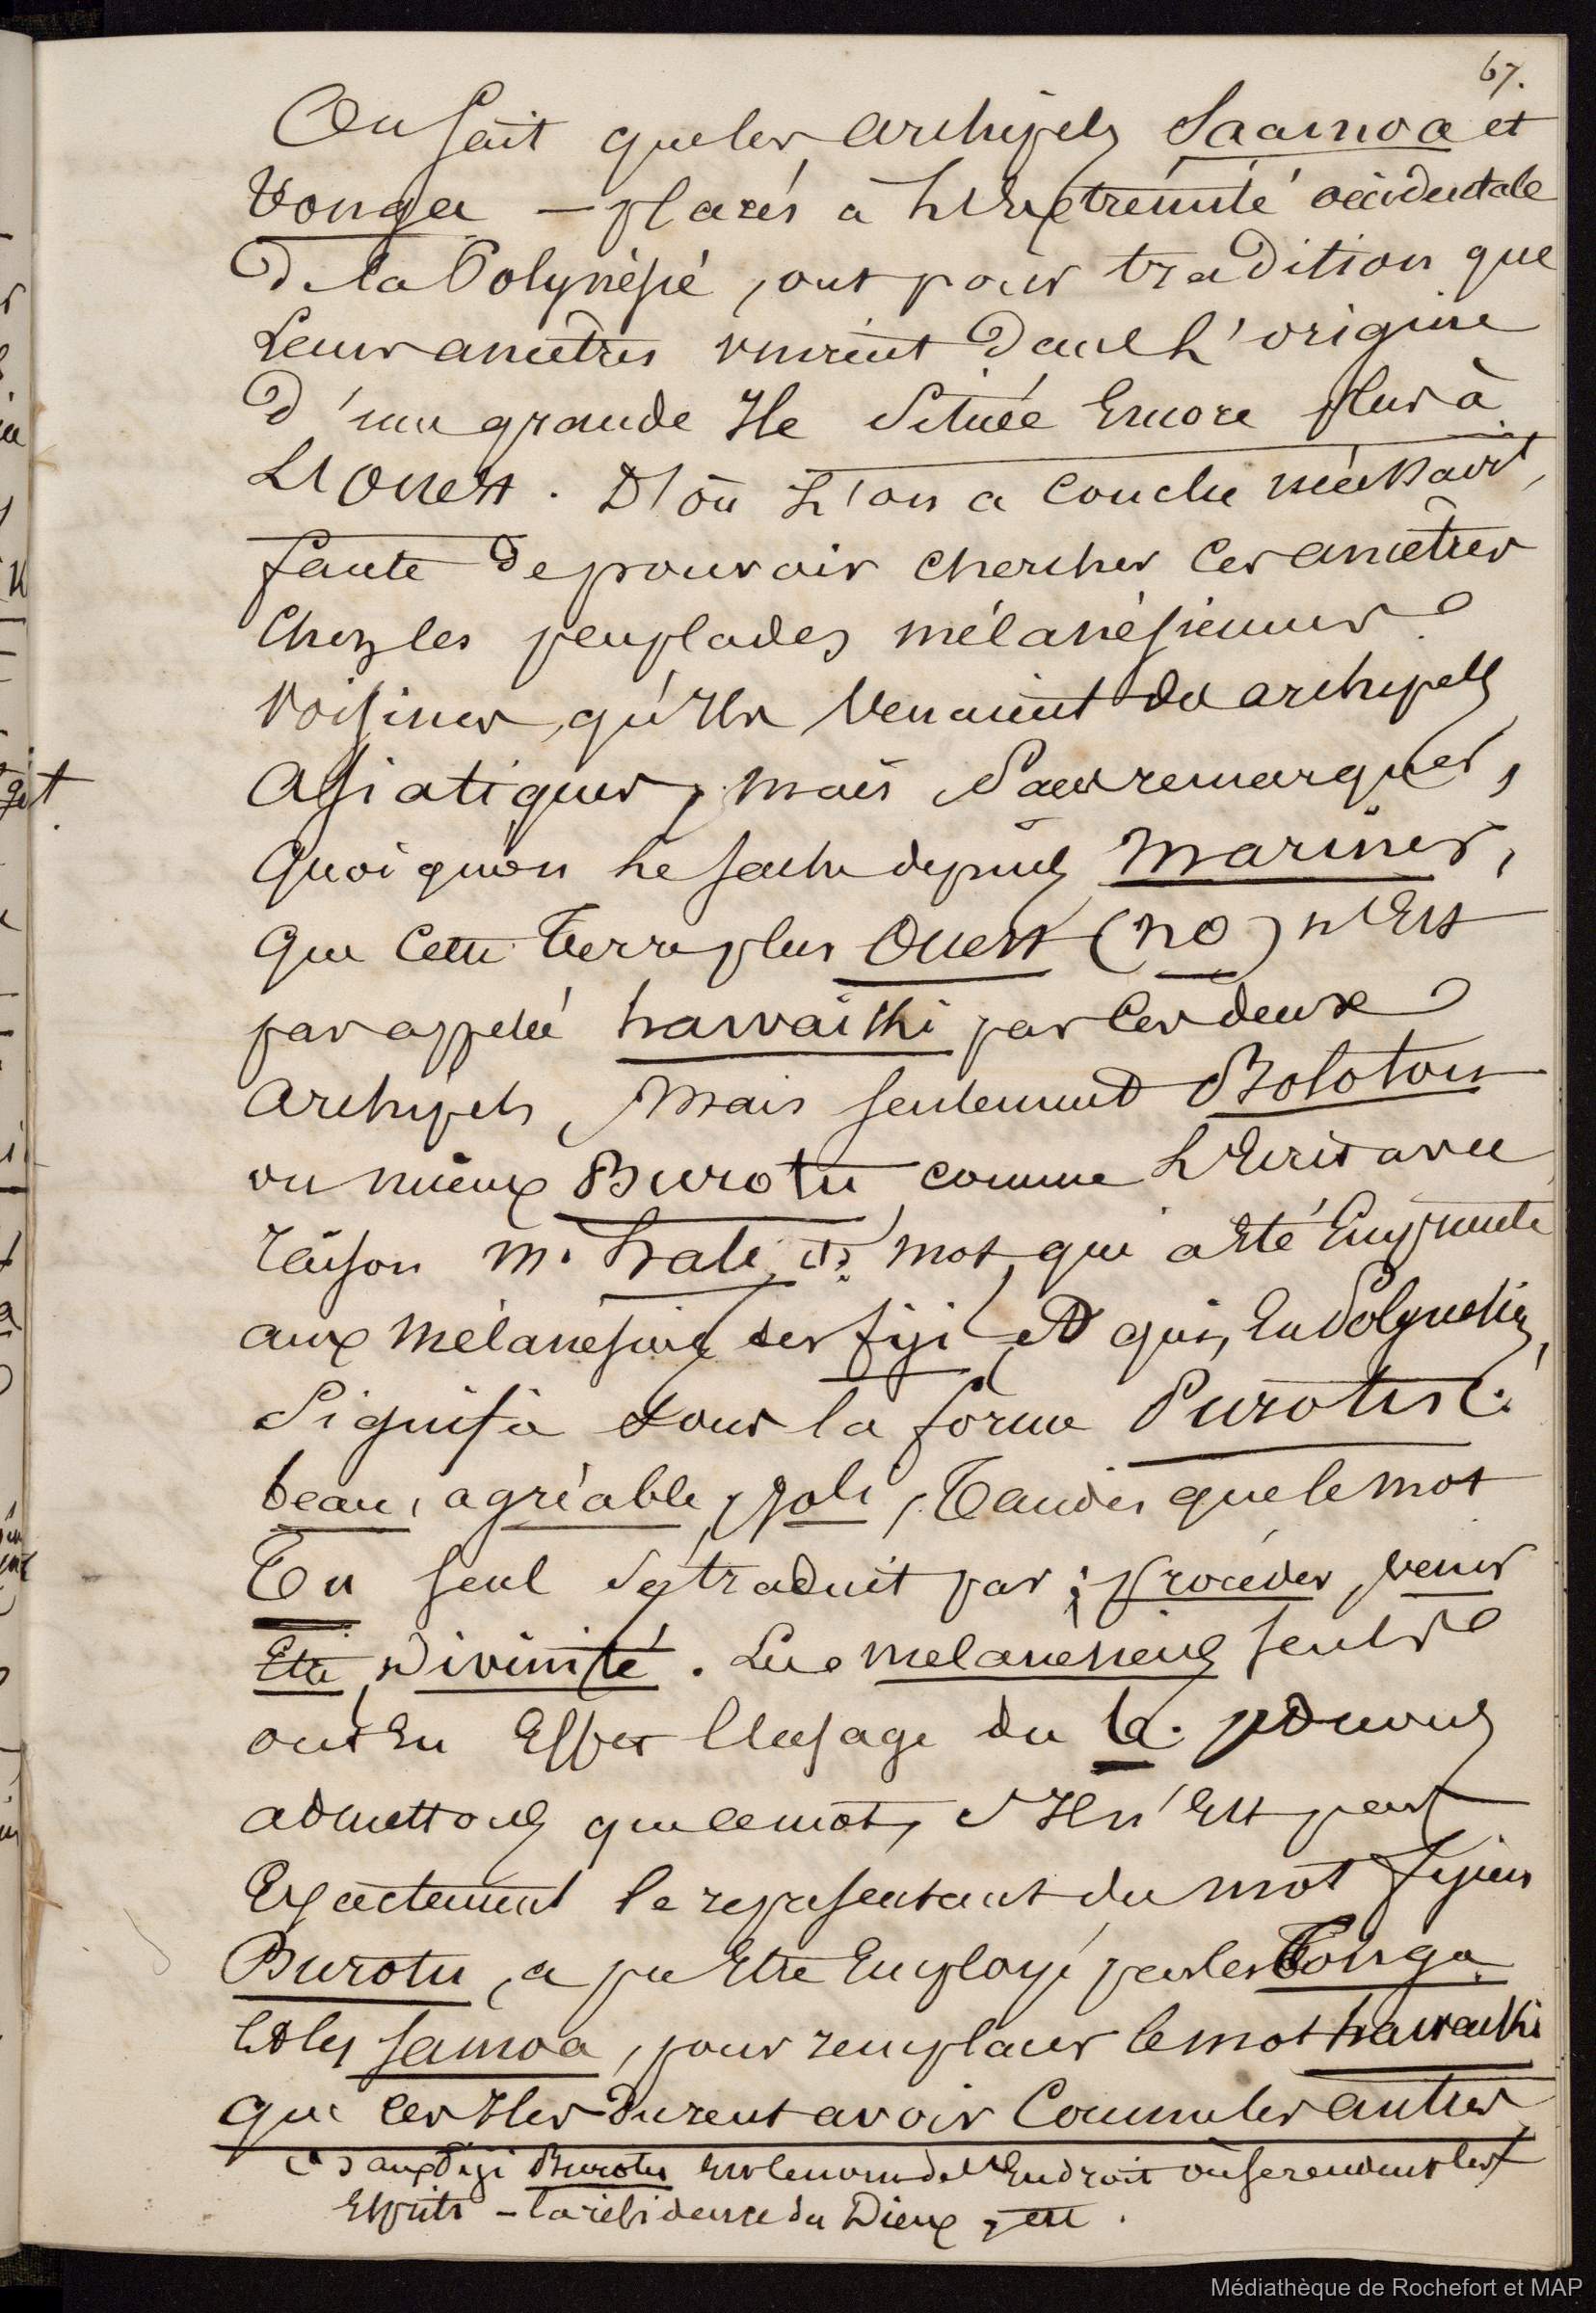 67.
On sait que les archipels Saamoa et
Tonga — placés à l'extrémité occidentale
de la Polynésie, ont pour tradition que
leurs ancêtres vinrent dans l'origine
d'une grande Ile située encore plus à
L'Ouest. D'où l'on a conclu nécessairt,
faute de pouvoir chercher ces ancêtres
chez les peuplades mélanésiennes
voisines, qu'Ils venaient des archipels
asiatiques, mais sans remarquer,
quoiqu'on le sache depuis Mariner,
que cette Terre plus Ouest (no) n'Est
pas appelée hawaïki par les deux
archipels, mais seulement Bolotou
ou mieux Burotu comme l'Ecrit avec
raison M. hale, (1) mot qui a été Emprunté
aux Mélanésiens des fiji et qui, En Polynésie,
signifie sous la forme Purotu (:
beau, agréable, joli, Tandis que le mot
Tu seul se traduit par: procéder, venir
Etre, Divinité. Les mélanésiens seuls
ont En Effet l'usage du b. nous
admettons que ce mot, s'Il n'Est pas
Exactement le représentant du mot fijien
Burotu, a pu Etre Employé par les Tonga
et les Samoa, pour remplacer le mot hawaïki
que ces Iles durent avoir comme les autres
(1) aux Fiji Burotu est le nom de l'Endroit où se rendent les
Esprits — la résidence du Dieux, etc.
git
Médiathèque de Rochefort et MAP